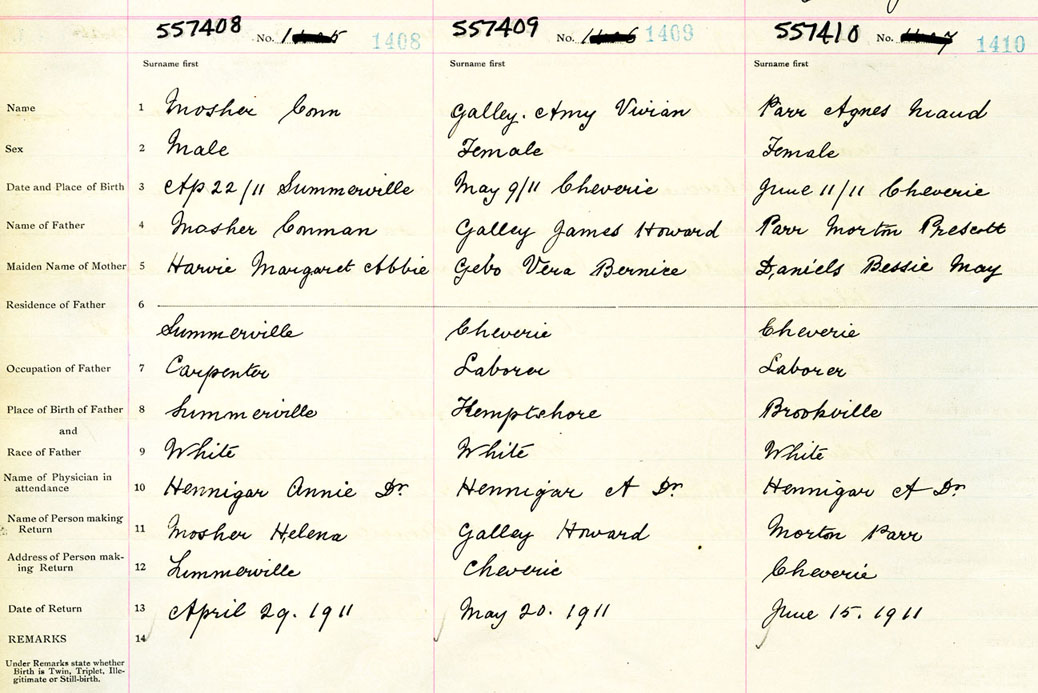 557408 No. 1408 557409 No. 1409 557410 No. 1410
Surname first Surname first Surname first
Name 1 Mosher Conn Galley. Amy Vivian Parr Agnes Maud
Sex 2 Male Female Female
Date and Place of Birth 3 Ap 22/11 Summerville May 9/11 Cheverie June 11/11 Cheverie
Name of Father 4 Mosher Conman Galley James Howard Parr Morton Prescott
Maiden Name of Mother 5 Harvie Margaret Abbie Gebo Vera Bernice Daniels Bessie May
Residence of Father 6
Summerville Cheverie Cheverie
Occupation of Father 7 Carpenter Laborer Laborer
Place of Birth of Father 8 Summerville Kemptshore Brookville
and
Race of Father 9 White White White
Name of Physician in
attendance 10 Hennigar Annie Dr Hennigar A Dr Hennigar A Dr
Name of Person making
Return 11 Mosher Helena Galley Howard Morton Parr
Address of Person mak-
ing Return 12 Summerville Cheverie Cheverie
Date of Return 13 April 29. 1911 May 20. 1911 June 15. 1911
REMARKS 14
Under Remarks state whether
Birth is Twin, Triplet, Ille-
gitimate or Still-birth.